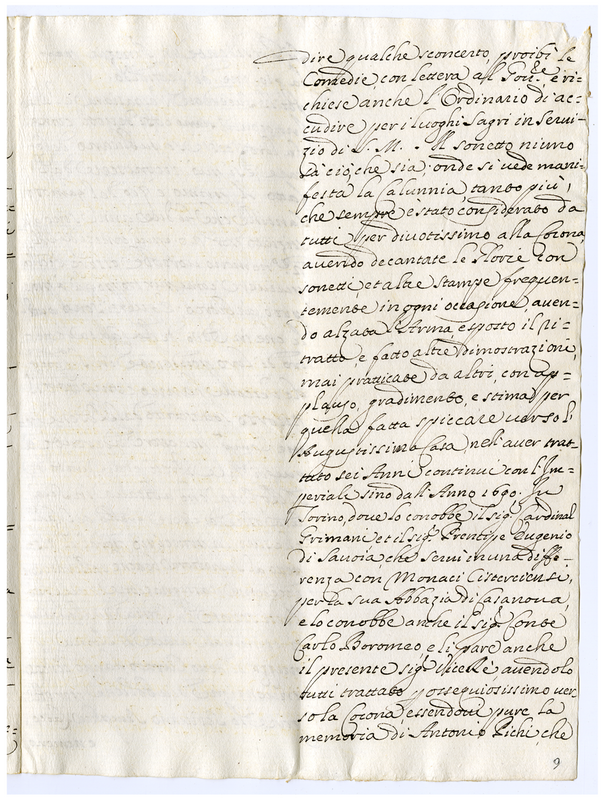 dire qualche sconcerto, proibì le
Comedie, con lettera al Gov.re e ri=
chiese anche l'Ordinario di ac=
cudire per i luoghi Sagri in servi=
zio di S. M. Il sonetto niuno
sà ciò, che sia; onde si vede mani=
festa la Calunnia tanto più,
che sempre è stato considerato da
tutti per divotissimo alla Corona
avendo decantate le Glorie con
sonetti, et altre stampe frequen=
temente in ogni occasione, aven=
do alzata l'Arma esposto il ri=
tratto, e fatto altre dimostrazioni,
mai pratticate da altri, con ap=
plauso, gradimento, e stima per
quella fatta spiccare verso l'
Augustissima Casa, nell'aver trat=
tato sei Anni continui con l'Im=
periale sino dall'Anno 1690. In
Torino, dove lo conobbe il sig.r Cardinal
Grimani et il sig.r Prencipe Eugenio
di Savoia che servì in una diffe=
renza con Monaci Cisterciensi,
per la sua Abbazia di Casanova,
e lo conobbe anche il sig.r Conte
Carlo Boromeo, e li pare anche
il presente sig.r Vice Rè, avendolo
tutti trattato ossequiosissimo ver
so la Corona essendovi pure la
memoria di Antonio Pichi, che
9